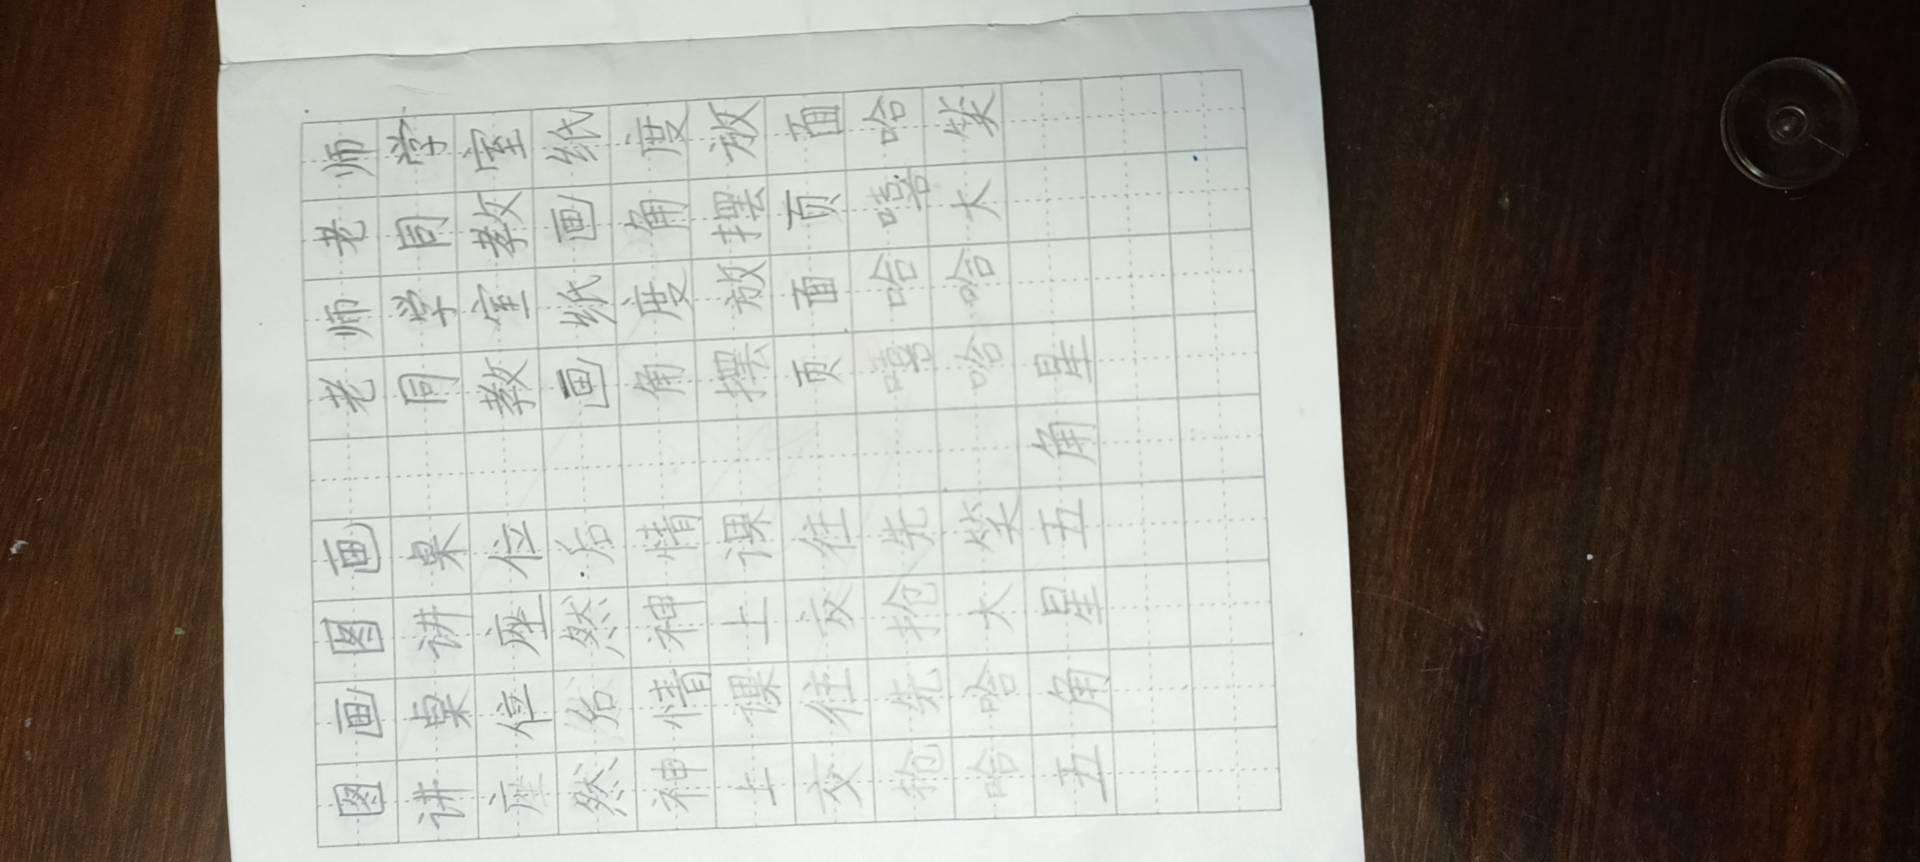 图画图画 老师老师
讲桌讲桌 同学同学
座位座位 教室教室
然后然后 画纸画纸
神情神情 角度角度
上课上课 摆放摆放
交往交往 页面页面
抢先抢先 嘻哈嘻哈
哈哈大笑 哈哈大笑
五角星五角星